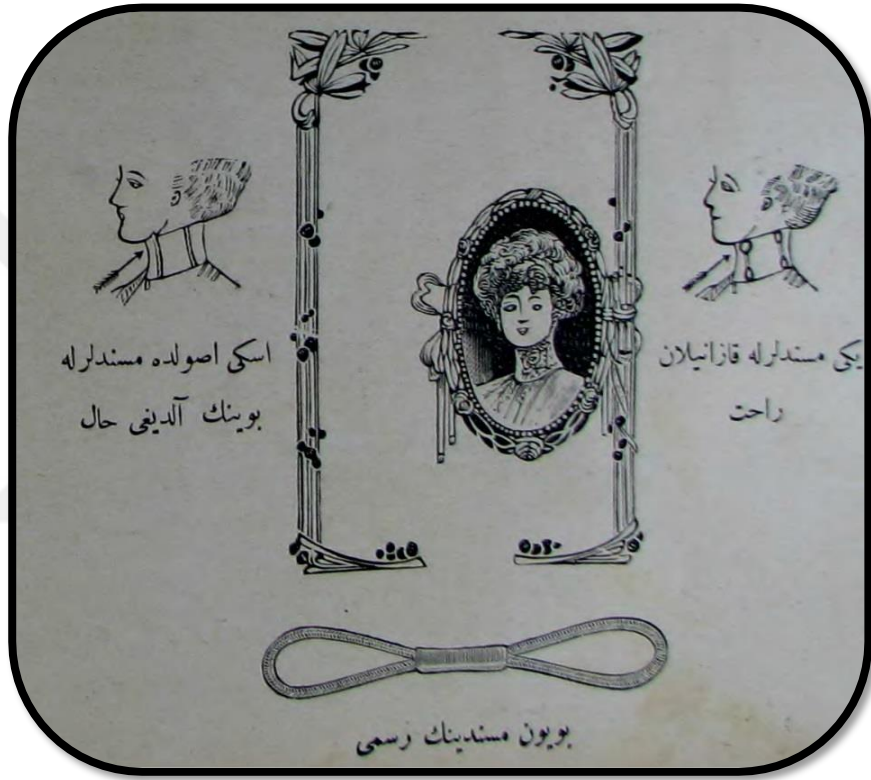 يكى مسندلرله قازانيلان
راحت
اسكى اصولده مسندلرله
بوينك آلديغى حال
بويون مسندينك رسمى